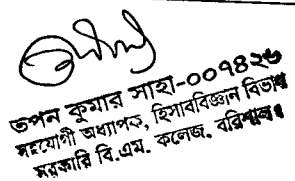 তপন কুমার সাহা-০০৭৪২৬
সহযোগী অধ্যাপক, হিসাববিজ্ঞান বিভাগ
সরকারি বি.এম. কলেজ, বরিশাল।